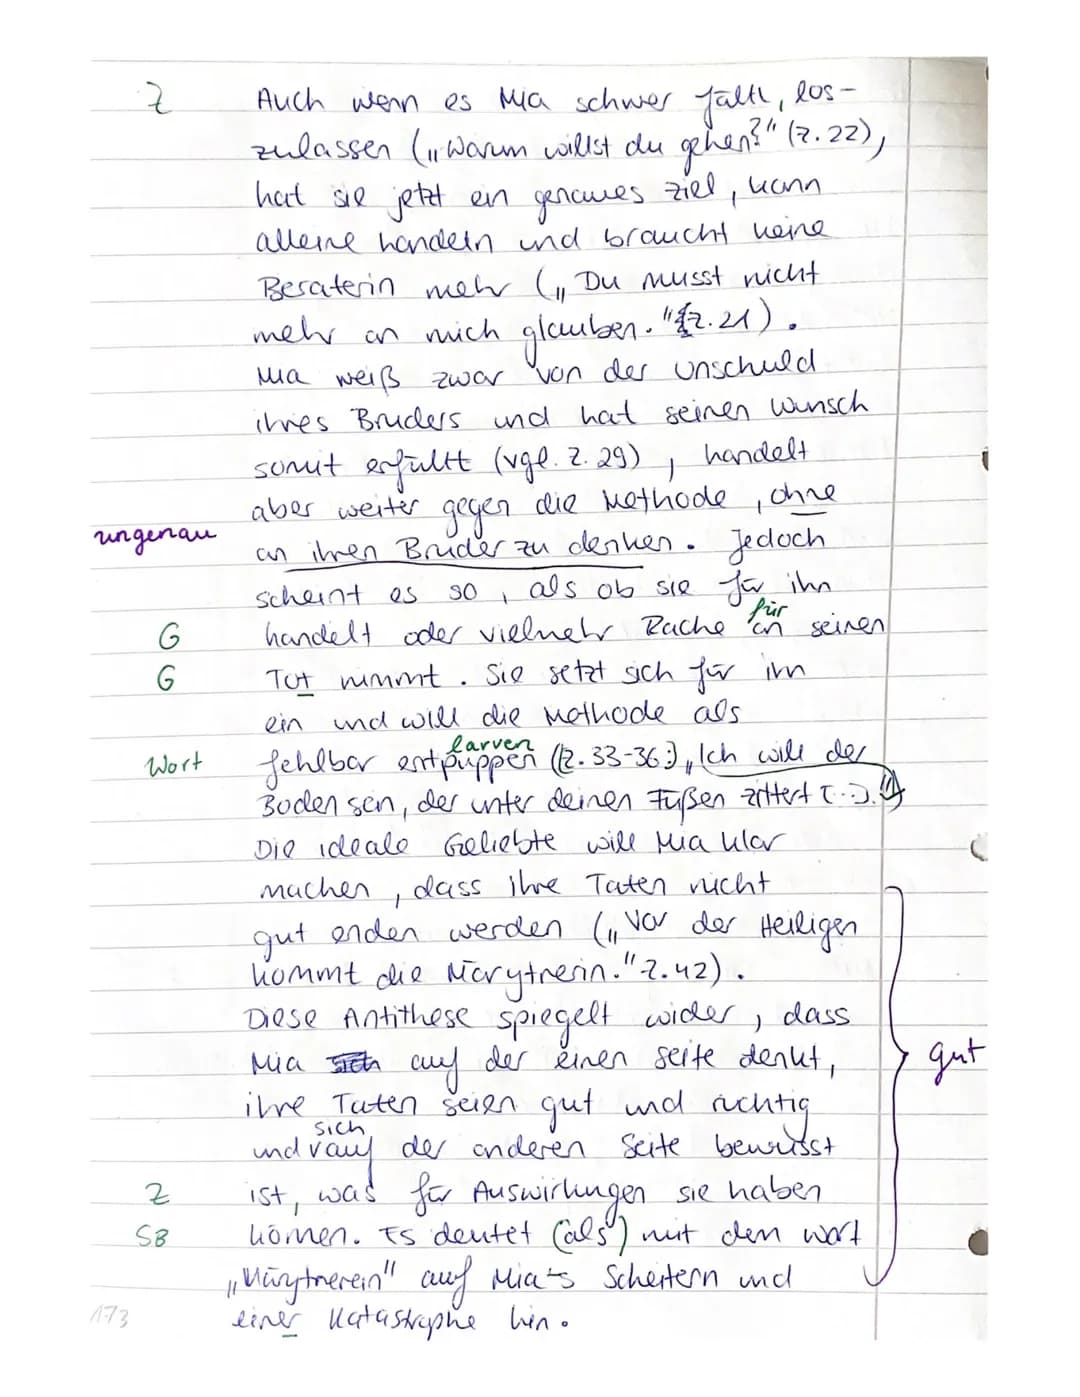 Z Auch wenn es Mia schwer fällt, los-
zulassen („Warum willst du gehen?" (Z.22),
hat sie jetzt ein genaues Ziel, kann
alleine handeln und braucht keine
Beraterin mehr („Du musst nicht
mehr an mich glauben." Z.21).
Mia weiß zwar von der Unschuld
ihres Bruders und hat seinen Wunsch
somit erfüllt (vgl. Z. 29), handelt
aber weiter gegen die Methode, ohne
ungenau an ihren Bruder zu denken. Jedoch
scheint es so, als ob sie für ihn
für
G handelt oder vielmehr Rache an seinen
G Tot nimmt. Sie setzt sich für ihn
ein und will die Methode als
larven
Wort fehlbar entpuppen (Z. 33-36:) „Ich will der
Boden sein, der unter deinen Füßen zittert [...]."
Die ideale Geliebte will Mia klar
machen, dass ihre Taten nicht
gut enden werden („Vor der Heiligen
kommt die Märytrerin." Z.42).
Diese Antithese spiegelt wider, dass
Mia auf der einen Seite denkt, gut
ihre Taten seien gut und richtig
sich
und auf der anderen Seite bewusst
Z ist, was für Auswirkungen sie haben
SB können. Es deutet (als) mit dem Wort
„Märytrerein" auf Mia's Scheitern und
173 einer Katastrophe hin.